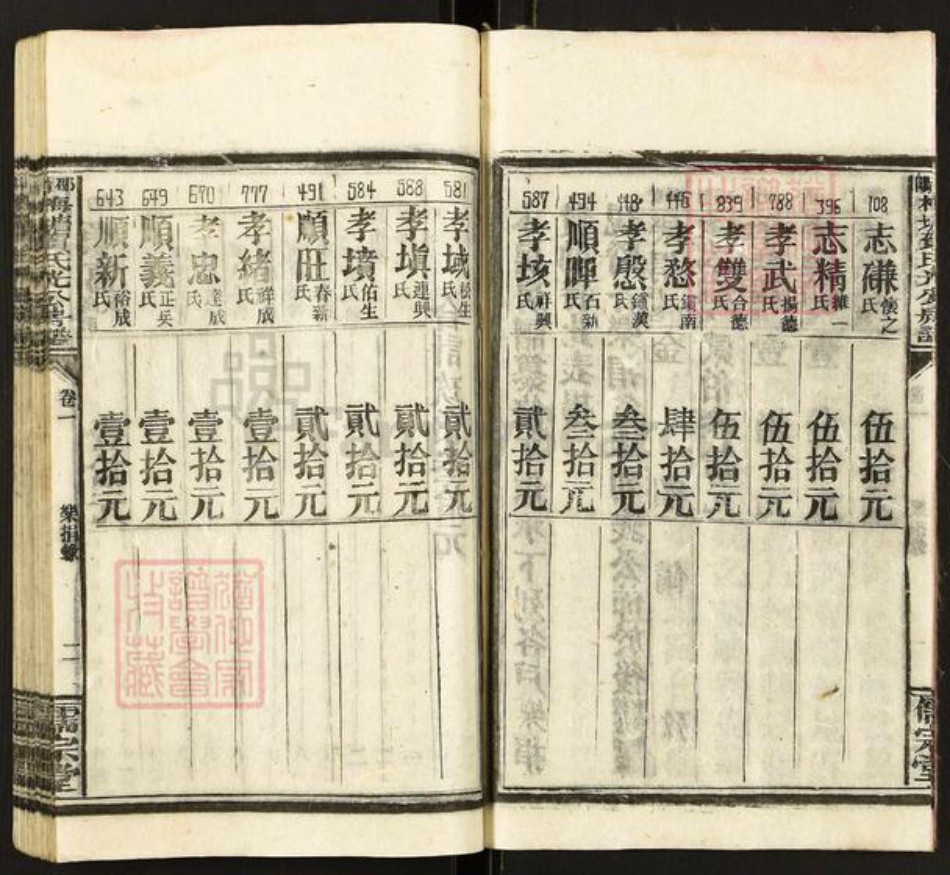 708 志磏氏 懷之 伍拾元
396 志精氏 維一 伍拾元
788 孝武氏 揚德 伍拾元
839 孝雙氏 合德 伍拾元
446 孝愁氏 鎮南 肆拾元
448 孝慇氏 鎮漢 叁拾元
494 順暉氏 石新 叁拾元
587 孝垓氏 祥興 貳拾元
儒宗堂
581 孝域氏 貳拾元
588 孝塡氏 連興 貳拾元
584 孝墳氏 伯生 貳拾元
491 順旺氏 春新 貳拾元
777 孝緒氏 祥成 壹拾元
670 孝忠氏 達成 壹拾元
649 順義氏 正吳 壹拾元
643 順新氏 裕成 壹拾元
卷一
樂捐錄
二
儒宗堂
譜學會
收藏